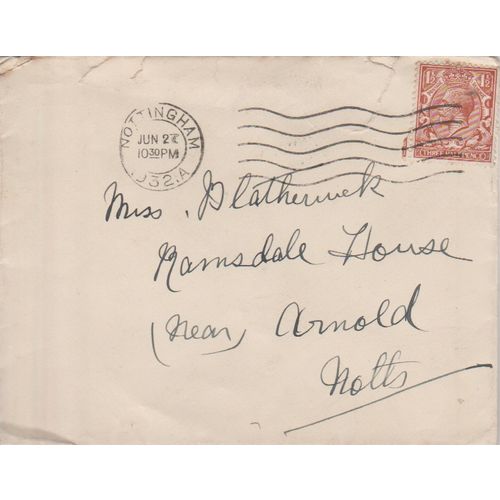 1½ 1½
THREE HALFPENCE
NOTTINGHAM
JUN 2
10 30 PM
1932. A
Miss. Blatherwick
Ramsdale House
(near) Arnold
Notts